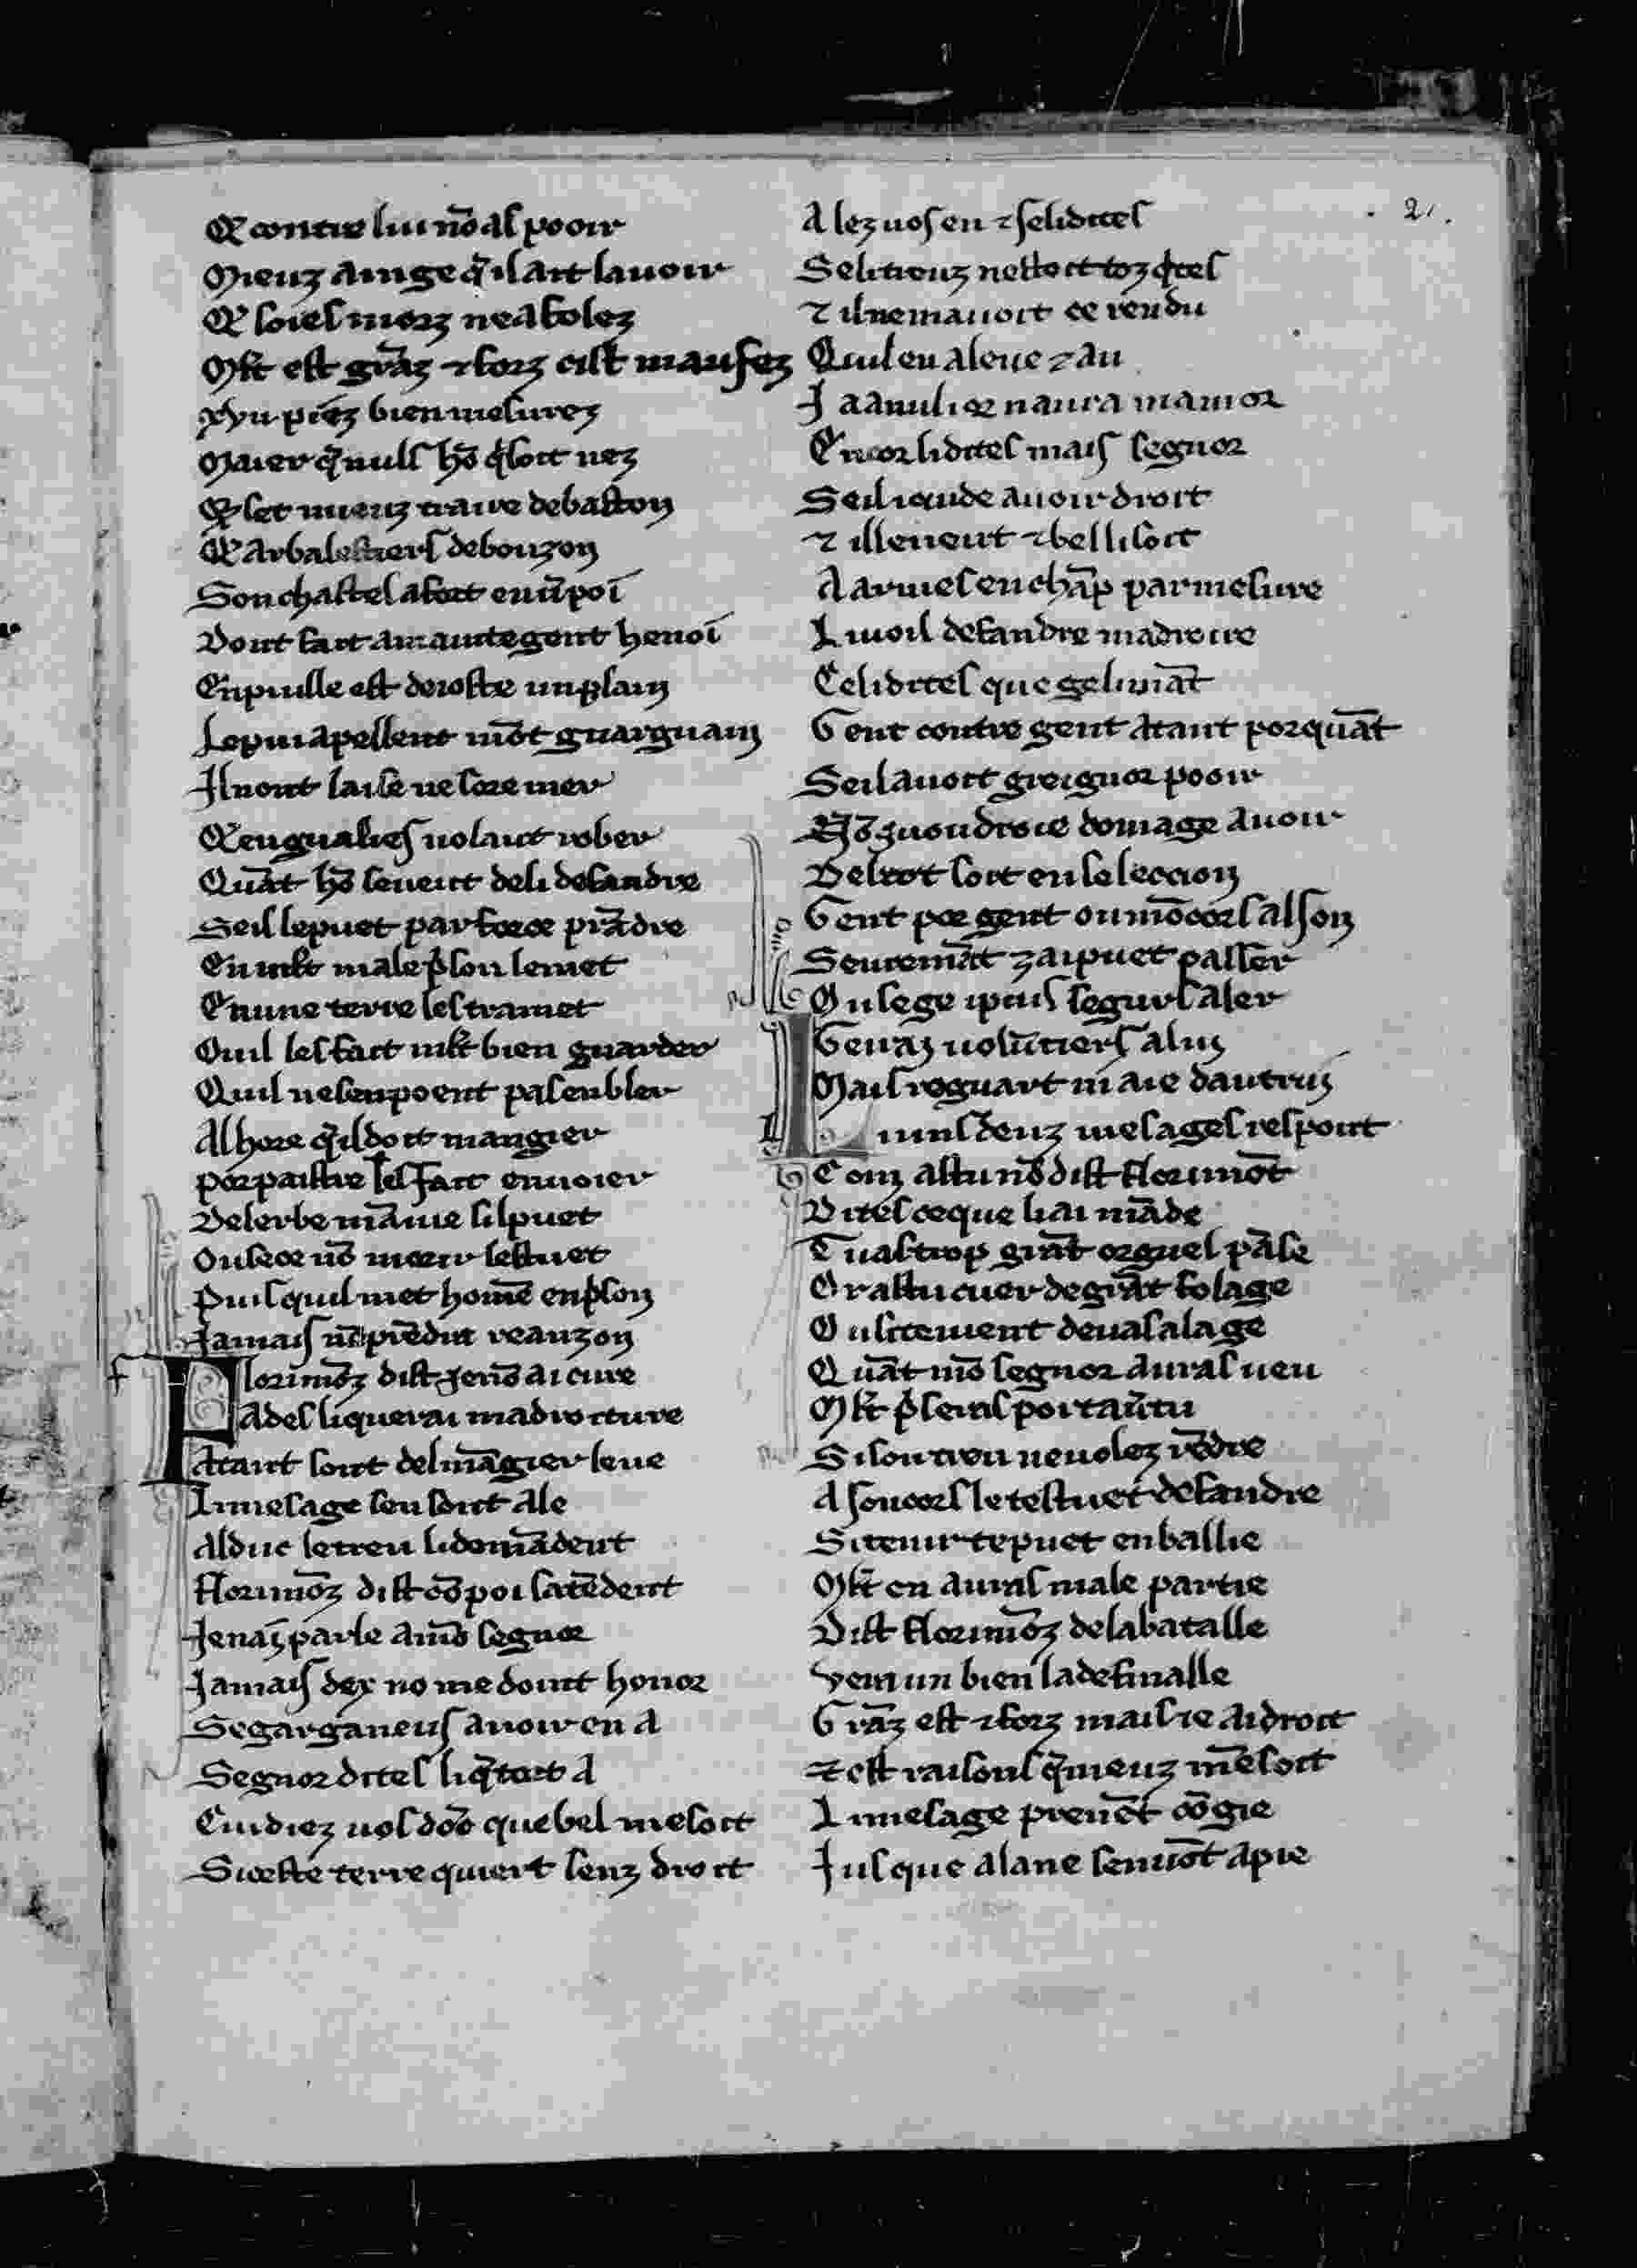 Et contre lui nō as pooir
Mieuz ainge q̄ il ait lauoir
Et soies morz ne afolez
Mlt est grāz ⁊ forz cist maufez
xv piez bien mesurez
Maier q̄ nuls hō q̄ soit nez
Et set mieuz traire de baston
Et arbalestiers de bouzon
Son chastel a fort en ū poi
Dont fait a mainte gent henoi
Enpuille est de coste un plain
Le pui apellent mōt guarguain
Il nont laise ne sore mer
Et en gualies uolant rober
Quāt hō se ueut de li defandre
Seil le puet par force prādre
En mlt male pͥson le met
En une terre les tramet
Ouil les fait mlt bien guarder
Quil ne sen poent pas enbler
Al hore q̄ il doit mangier
Por paistre les fait enuoier
Del erbe māiue sil puet
Ou se ce nō morir lestuet
Puis quil met home en pͥson
Jamais nē prēdra reanzon
Florimōz dist ie nō ai cure
Ades li querai ma droiture
Atant sont del māgier leue
Li mesage sen sont ale
Al duc le treu li demādent
Florimōz dist cō poi satēdent
Je nai parle a mō segnor
Jamais dex no me doint honor
Se garganeus auoir en a
Segnor dites li q̄ tort a
Cuidiez uos dōc que bel me soit
Si ceste terre quiert senz droit
Alez uos en ⁊ se li dites
Se li treuz nestoit toz q̇tes
⁊ il ne mauoit ce rendu
Quil en a leue ⁊ au
Ja a nul ior naura mamor
Encor li dites mais segnor
Se il i cuide auoir droit
⁊ il se ueut ⁊ bel li soit
A armes en chāp par mesure
Li uoil defandre ma droiture
Ce li dites que ge li māt
Gent contre gent atant por quāt
Se il auoit greignor pooir
Nō guoudroie domage auoir
Del tot soit en se leccion
Gent por gent ou mō cors al son
Seuremāt zai puet passer
Ou se ge i puis segurs aler
Ge uaz uolūtiers a lui
Mais reguart niaie dautrui
Li uns deuz mesages respont
Com as tu nō dist Florimōt
Dites ce que li ai māde
Tu as trop grāt orguel pāse
Or as tu cuer de grāt folage
Ou sitement de uasalage
Quāt mō segnor auras ueu
Mlt pͥseras por ta ūtu
Si son treu ne uolez rēdre
A son cors le testuet defandre
Si tenir te puet en ballie
Mlt en auras male partie
Dist Florimōz de la batalle
Vera un bien la definalle
Grāz est ⁊ forz mais ie ai droit
⁊ est raisons q̄ mieuz mē soit
Li mesage prenēt cōgie
Jusque a lane sen uōt a pie